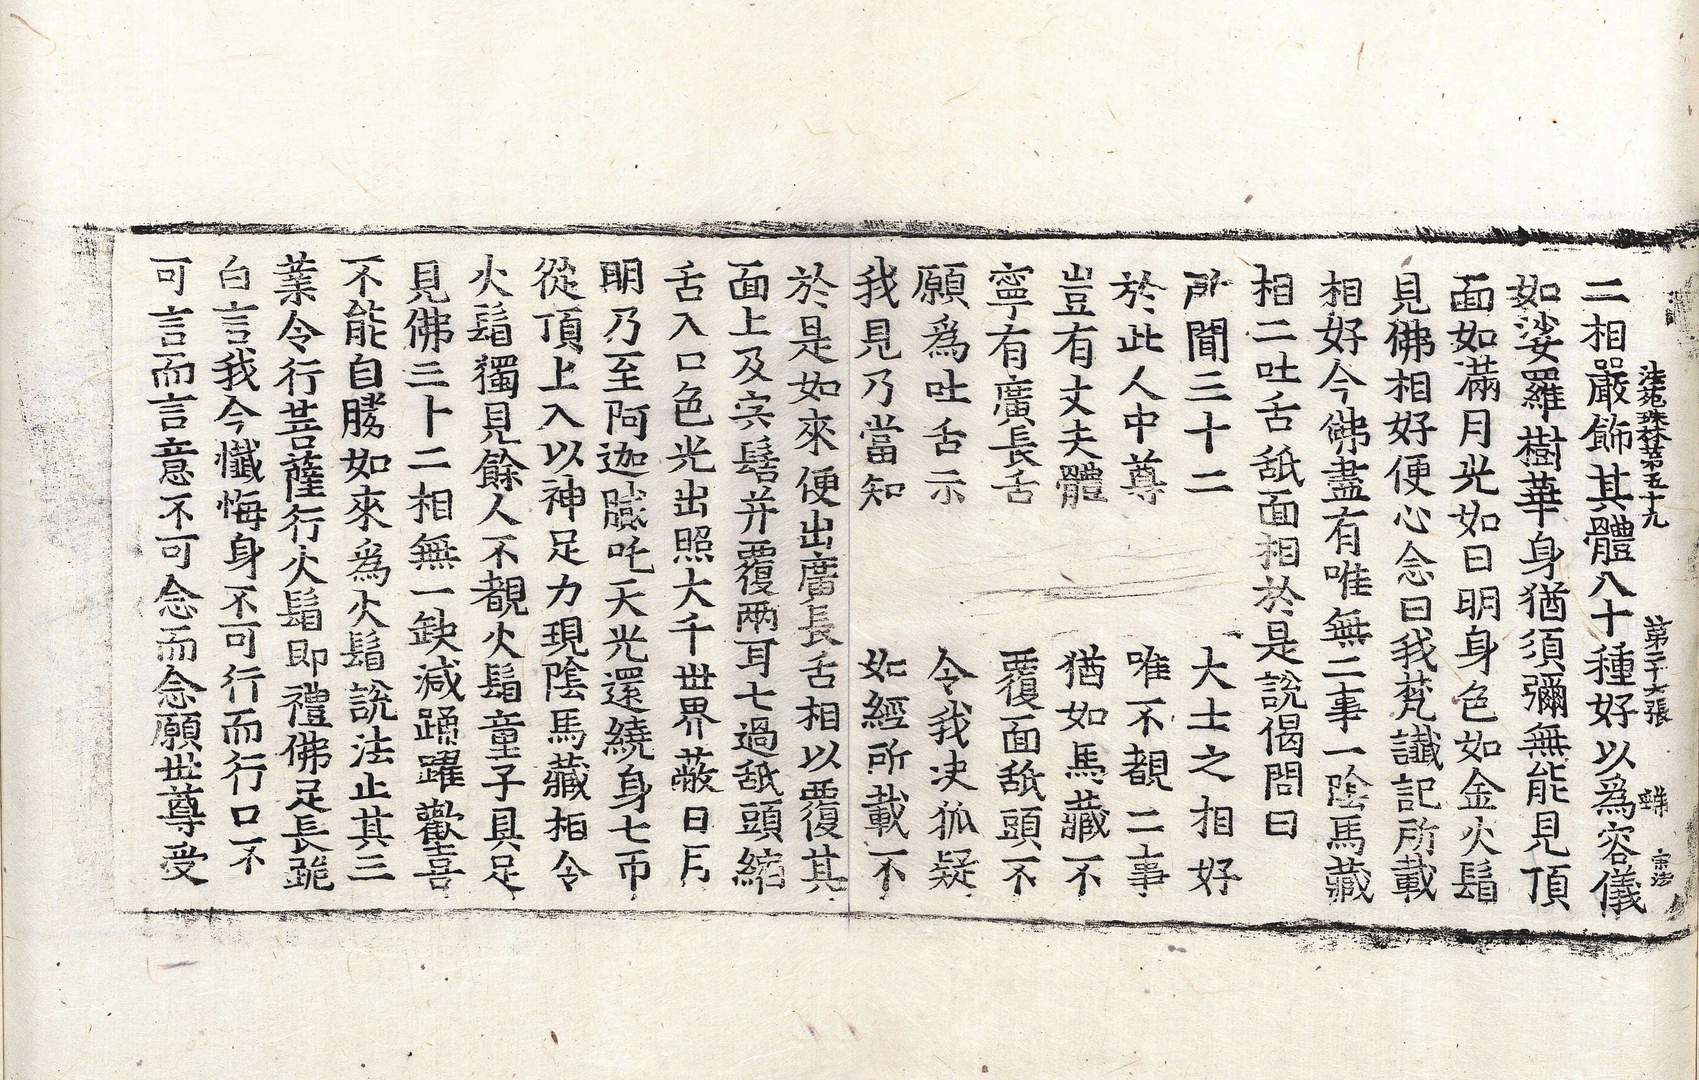 法苑珠林第五十九 第二十六張 宗法
二相嚴飾其體八十種好以爲容儀
如娑羅樹華身猶須彌無能見頂
面如滿月光如日明身色如金火鬘
見佛相好便心念曰我梵讖記所載
相好今佛盡有唯無二事一陰馬藏
相二吐舌舐面相於是說偈問曰
所聞三十二 大士之相好
於此人中尊 唯不覩二事
豈有丈夫體 猶如馬藏不
寧有廣長舌 覆面舐頭不
願爲吐舌示 令我决狐疑
我見乃當知 如經所載不
於是如來便出廣長舌相以覆其
面上及宍髻并覆兩耳七過舐頭縮
舌入口色光出照大千世界蔽日月
明乃至阿迦膩吒天光還繞身七帀
從頂上入以神足力現陰馬藏相令
火鬘獨見餘人不覩火鬘童子具足
見佛三十二相無一缺減踊躍歡喜
不能自勝如來爲火鬘說法止其三
業令行菩薩行火鬘即禮佛足長跪
白言我今懺悔身不可行而行口不
可言而言意不可念而念願世尊受